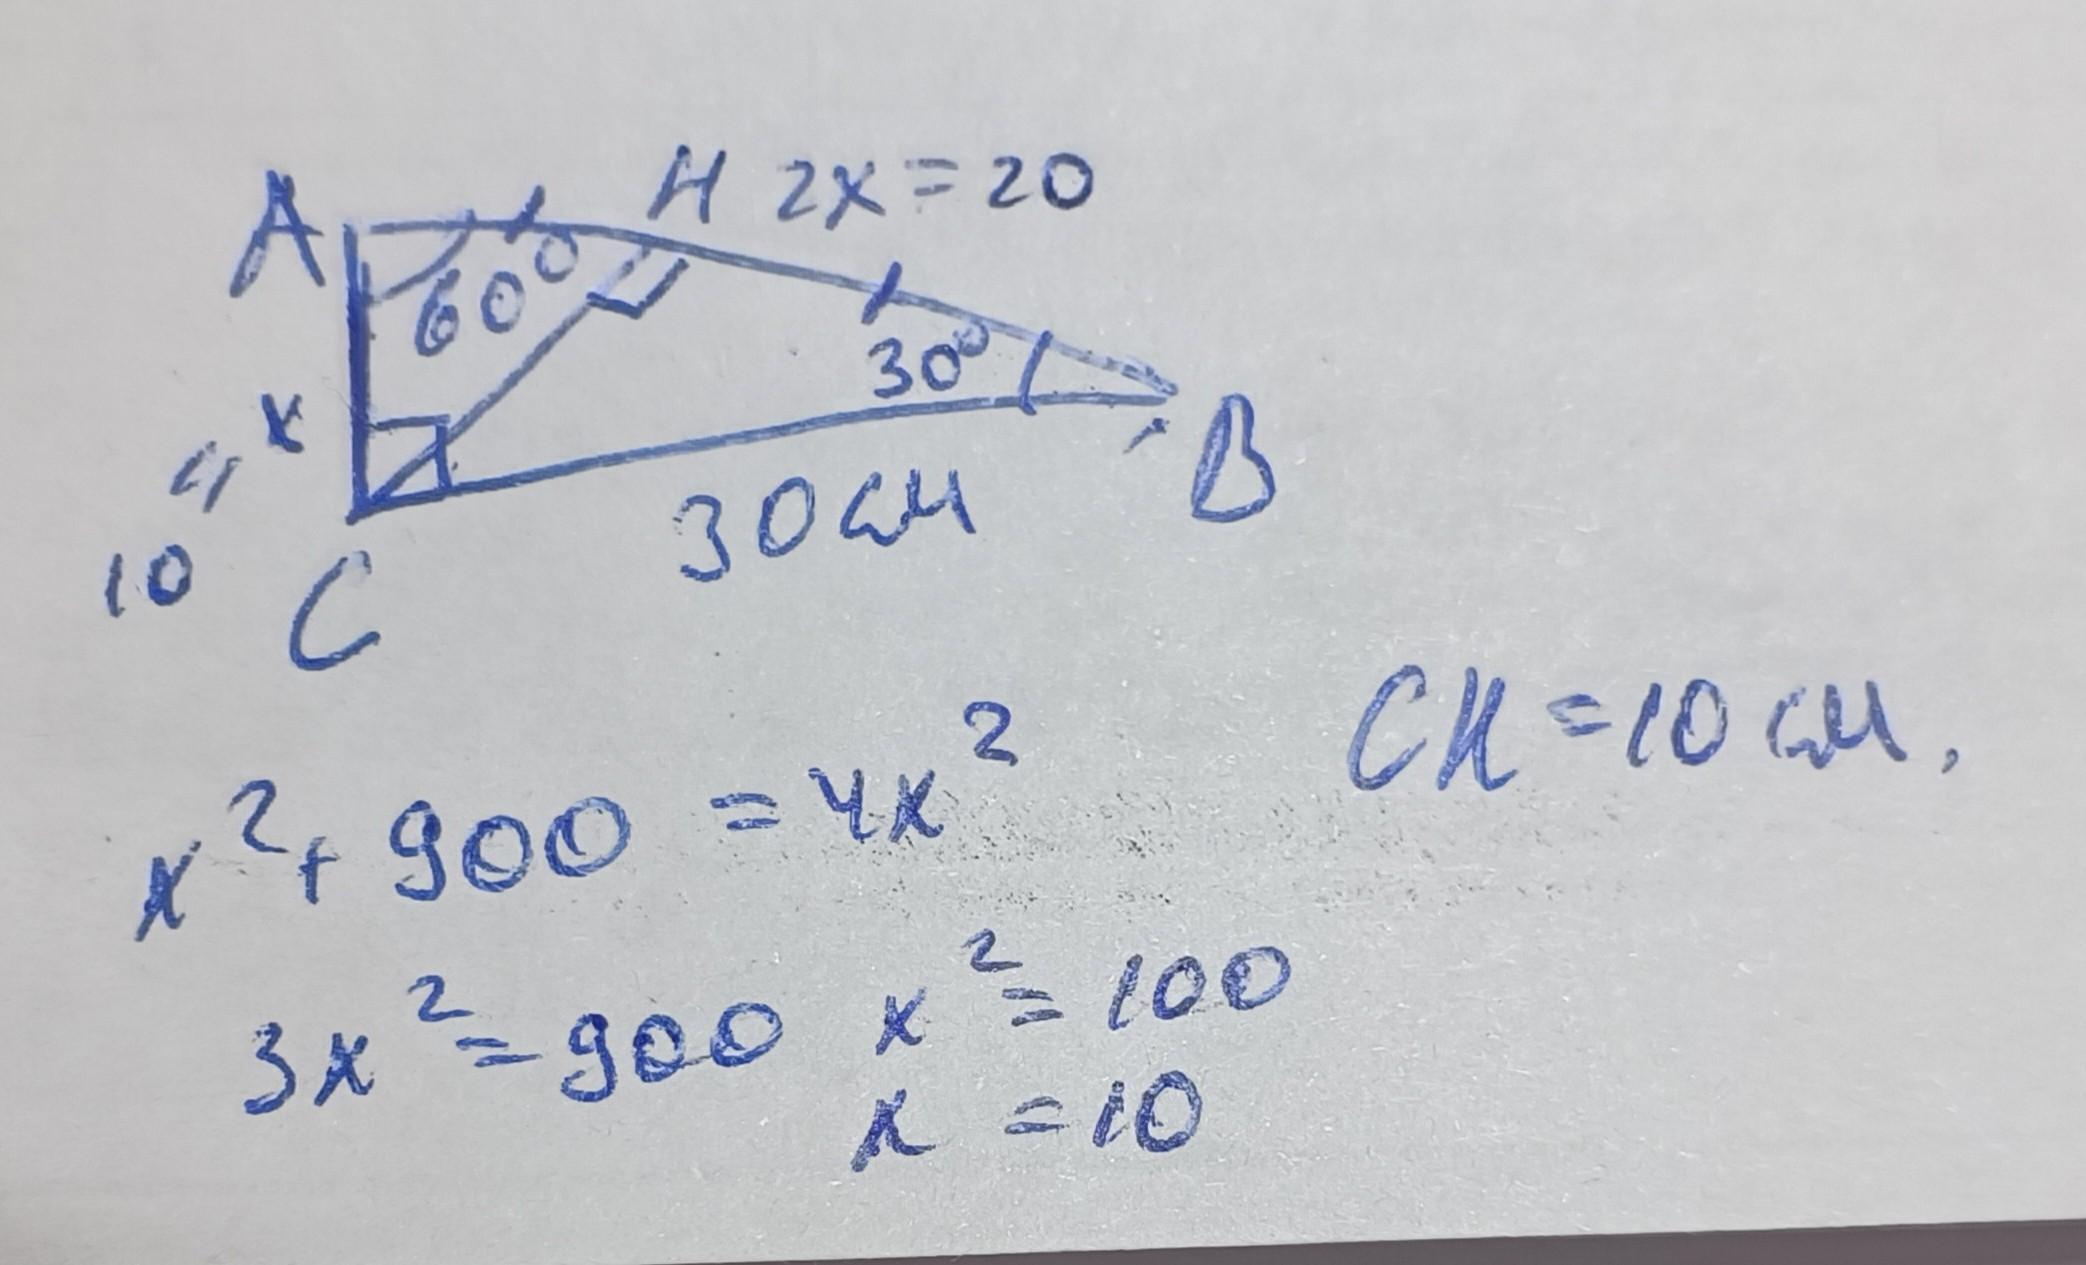 A H 2x = 20
60° 30°
x
"
10 C 30 см B
CH = 10 см.
x² + 900 = 4x²
3x² = 900 x² = 100
x = 10